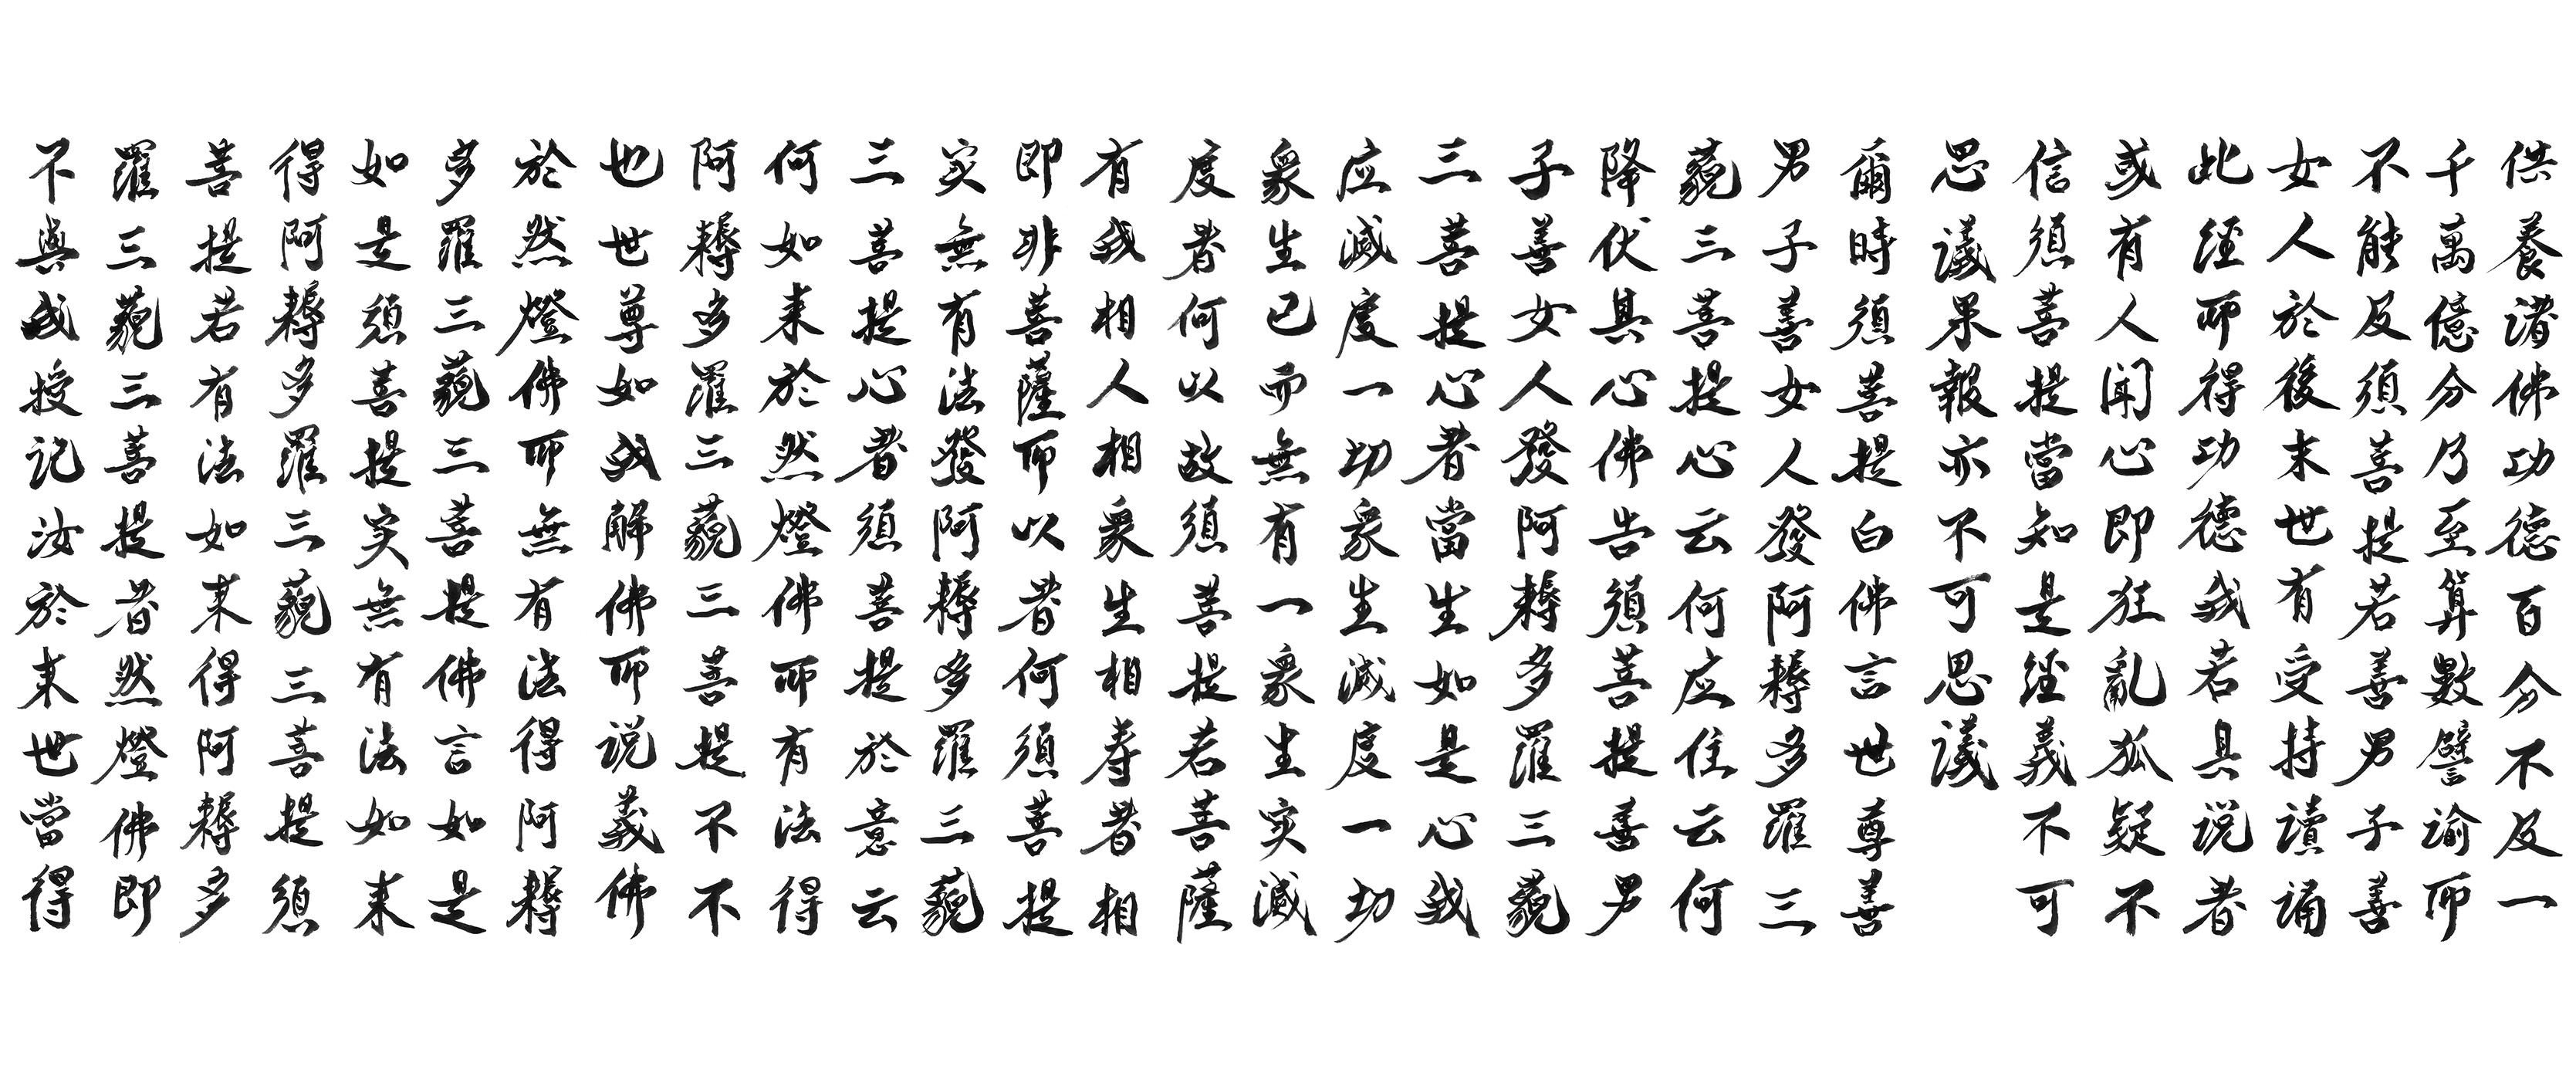 供養諸佛功德百分不及一
千萬億分乃至算數譬喻所
不能及須菩提若善男子善
女人於後末世有受持讀誦
此經所得功德我若具说者
或有人聞心即狂亂狐疑不
信須菩提當知是經義不可
思議果報亦不可思議
爾時須菩提白佛言世尊善
男子善女人發阿耨多羅三
藐三菩提心云何应住云何
降伏其心佛告須菩提善男
子善女人發阿耨多羅三藐
三菩提心者當生如是心我
应滅度一切衆生滅度一切
衆生已而無有一衆生实滅
度者何以故須菩提若菩薩
有我相人相衆生相寿者相
即非菩薩所以者何須菩提
实無有法發阿耨多羅三藐
三菩提心者須菩提於意云
何如来於然燈佛所有法得
阿耨多羅三藐三菩提不不
也世尊如我解佛所说義佛
於然燈佛所無有法得阿耨
多羅三藐三菩提佛言如是
如是須菩提实無有法如来
得阿耨多羅三藐三菩提須
菩提若有法如来得阿耨多
羅三藐三菩提者然燈佛即
不與我授记汝於来世當得